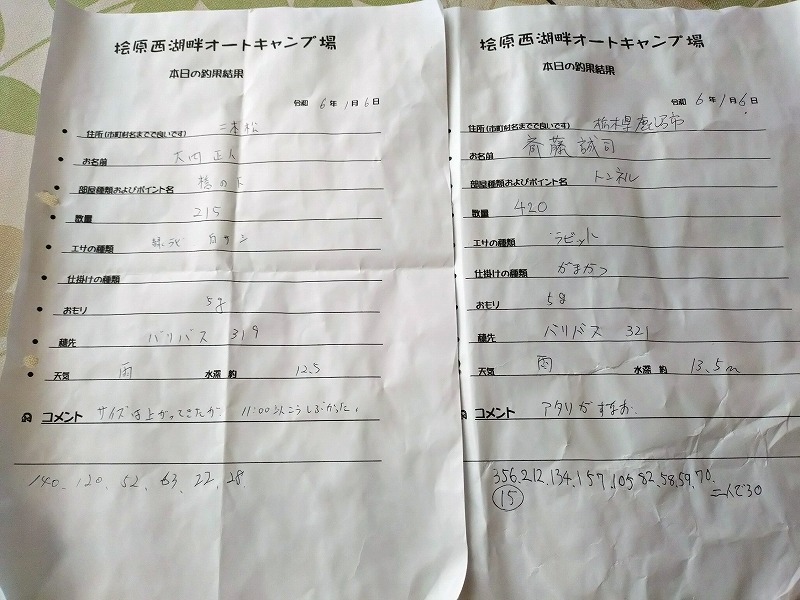 桧原西湖畔オートキャンプ場
本日の釣果結果
令和 6 年 1 月 6 日
住所(市町村名まででで良いです) 二本松
お名前 大内 正人
部屋種類およびポイント名 橋の下
数量 215
エサの種類 緑ラビ 白サシ
仕掛けの種類
おもり 5g
穂先 バリバス 319
天気 雨 水深 約 12.5
コメント サイズは上がってきたが 11:00以こうしぶかった。
140、120、52、63、22、28
桧原西湖畔オートキャンプ場
本日の釣果結果
令和 6 年 1 月 6 日
住所(市町村名まででで良いです) 栃木県鹿沼市
お名前 斎藤 誠司
部屋種類およびポイント名 トンネル
数量 420
エサの種類 ラビット
仕掛けの種類 がまかつ
おもり 5g
穂先 バリバス 321
天気 雨 水深 約 13.5m
コメント アタリがすなお、
356.212.134.157.105.82.58.59.70.
15 二人で30